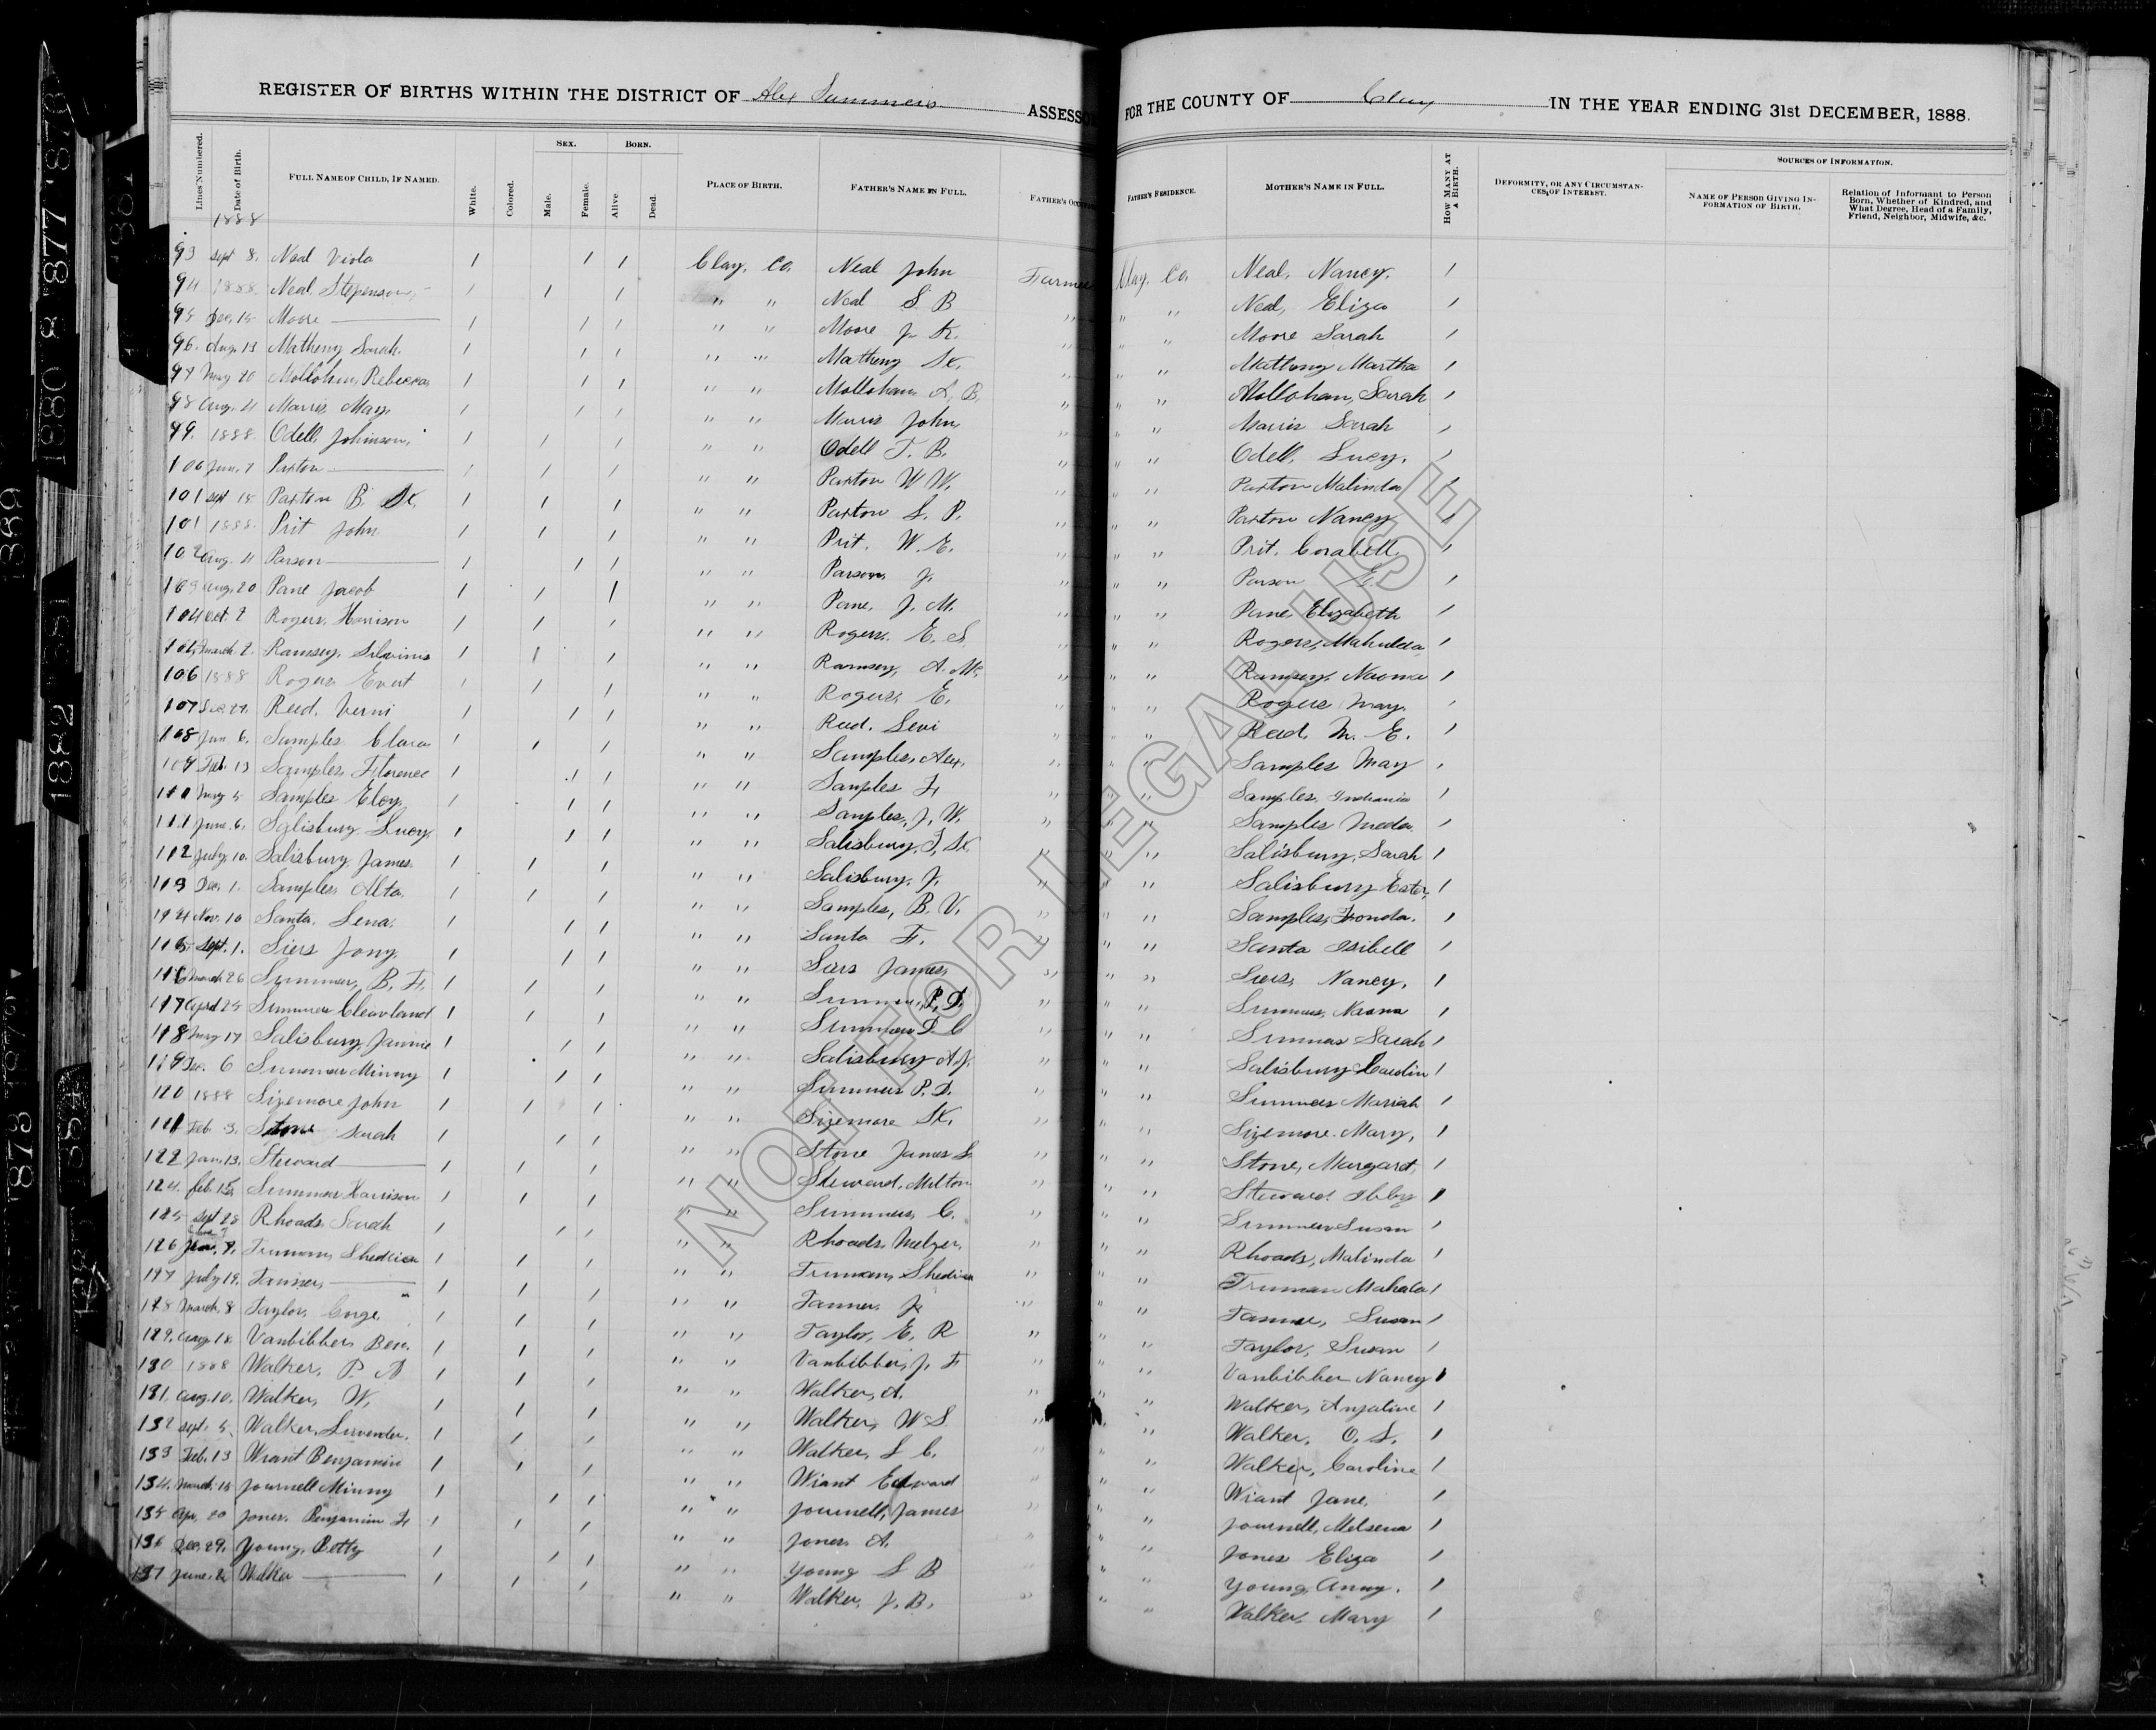 REGISTER OF BIRTHS WITHIN THE DISTRICT OF Alex Summers ASSESSO FOR THE COUNTY OF Clay IN THE YEAR ENDING 31st DECEMBER, 1888.
Lines Numbered. Date of Birth. FULL NAME OF CHILD, IF NAMED. White. Colored. SEX. Male. Female. BORN. Alive. Dead. PLACE OF BIRTH. FATHER'S NAME IN FULL. FATHER'S OCCU FATHER'S RESIDENCE. MOTHER'S NAME IN FULL. HOW MANY AT A BIRTH. DEFORMITY, OR ANY CIRCUMSTANCES, OF INTEREST. SOURCES OF INFORMATION. NAME OF PERSON GIVING INFORMATION OF BIRTH. Relation of Informant to Person Born, Whether of Kindred, and What Degree, Head of a Family, Friend, Neighbor, Midwife, &c.
1888
93 Sept 8. Neal Viola / / / Clay. Co. Neal John Farmer Clay. Co. Neal, Nancy. /
94 1888 Neal Stepenson / / / " " Neal S B " " " Neal, Eliza /
95 Dec. 15 Moore / / / " " Moore J. K. " " " Moore Sarah /
96. Aug. 13 Matheny Sarah. / / / " " Matheny " " " Martha /
97 May 20 Mollohan, Rebecca / / / " " Mollohan " " " Mollohan, Sarah /
98 Aug. 4 Morris May / / / " " Morris John " " " Morris Sarah /
99. 1888 Odell Johnson / / / " " Odell T. B. " " " Odell, Lucy. /
100 Jan. 7 Paxton / / / " " Paxton W W. " " " Paxton Malinda /
101 Sept 18 Paxton B. / / / " " Paxton S. P. " " " Paxton Nancy /
101 1888 Prit John / / / " " Prit. W. E. " " " Prit. Corabell. /
102 Aug. 4 Parson / / / " " Parson J. " " " Parson /
103 Aug. 20 Pane Jacob / / / " " Pane, J. M. " " " Pane Elizabeth /
104 Oct. 2 Rogers, Harrison / / / " " Rogers. E. S. " " " Rogers, /
March 2. Ramsey, / / / " " Ramsey, A. " " " Ramsey, Naoma /
106 1888 Rogers Evert / / / " " Rogers, E. " " " Rogers May. /
107 Dec. 27. Reed. Verni / / / " " Reed. Levi " " " Reed. M. E. /
108 Jan 6. Samples. Clara / / / " " Samples, Alex. " " " Samples May /
109 Feb. 13 Samples, Florence / / / " " Samples F. " " " Samples, Indiania /
110 May 5 Samples Eloy / / / " " Samples, J. W. " " " Samples Meda. /
111 June. 6. Salisbury Lucy / / / " " Salisbury, " " " Salisbury, Sarah /
112 July 10. Salisbury James. / / / " " Salisbury, J. " " " Salisbury Ester, /
113 Dec. 1. Samples Alta / / / " " Samples, B. V. " " " Samples, /
114 Nov. 10 Santa. Lena. / / / " " Santa F. " " " Santa Isibell /
115 Sept. 1. Siers / / / " " Siers James " " " Siers, Nancy. /
116 March 26 Summers, B. F. / / / " " Summers, P. D. " " " Summers, Naoma /
117 April 25 Summers Cleavland / / / " " Summers D. C " " " Summers Sarah /
118 May 17 Salisbury, Jannie / / / " " Salisbury A J. " " " Salisbury Carolin /
119 Dec. 6 Summers Minny / / / " " Summers P. D. " " " Summers Mariah /
120 1888 Sizemore John / / / " " Sizemore " " " Sizemore. Mary, /
Feb. 3. Stone Sarah / / / " " Stone James S. " " " Stone, Margaret, /
122 Jan. 13. Steward / / / " " Steward, Milton " " " Steward /
124. Feb. Summers Harrison / / / " " Summers, C. " " " Summers Susan /
125 Sept 28 Rhoads Sarah / / / " " Rhoads, " " " Rhoads, Malinda /
126 Truman, / / / " " Truman, " " " Truman Mahala /
July 19. Tanner, / / / " " Tanner, J. " " " Tanner, Susan /
128 March. 8 Taylor, / / / " " Taylor, E. R " " " Taylor, Susan /
129. Aug. 18 Vanbibber Ben. / / / " " Vanbibber, J. F " " " Vanbibber Nancy /
130 1888 Walker, P. / / / " " Walker, A. " " " Walker, Anjaline /
131. Aug. 10. Walker, W, / / / " " Walker, W S. " " " Walker, O. S. /
132 Sept. 5. Walker, / / / " " Walker, S C. " " " Walker, Caroline /
133 Feb. 13 Wiant Benjamin / / / " " Wiant Edward " " " Wiant Jane. /
134. March. 15 Journell Minny / / / " " Journell, James " " " Journell, /
135 Apr. 20 Jones. Benjamin F / / / " " Jones A. " " " Jones Eliza /
136 Dec. 29. Young, Betty / / / " " Young S B " " " Young, Anny. /
137 June. Walker / / / " " Walker, J. B. " " " Walker, Mary /
NOT FOR LEGAL USE